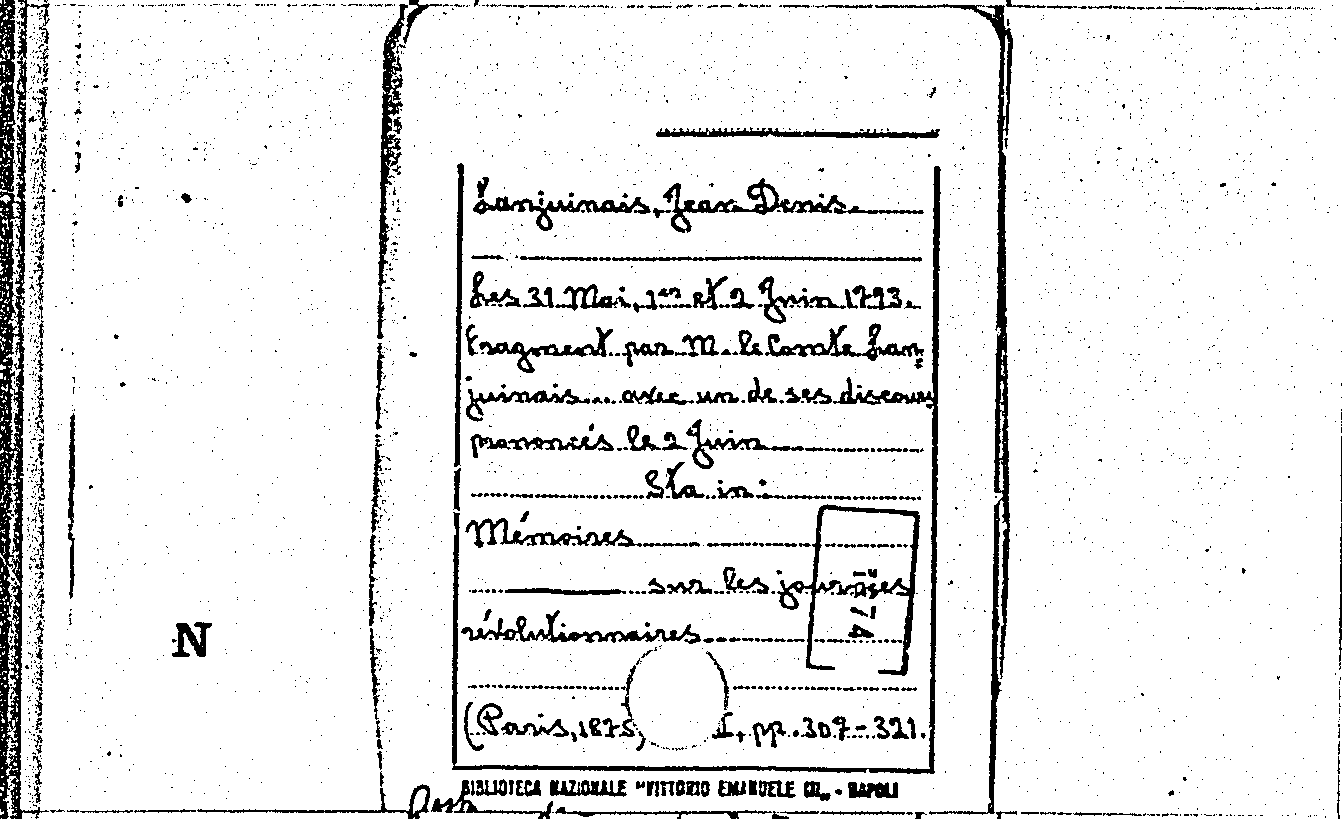 Lanjuinais, Jean Denis.
Les 31 Mai, 1er et 2 Juin 1793.
Fragment par M. le Comte Lan-
juinais... avec un de ses discours
prononcés le 2 Juin
Sta in:
Mémoires
sur les journées
révolutionnaires
74
N
(Paris, 1875, I, pp. 307-321.
BIBLIOTECA NAZIONALE "VITTORIO EMANUELE III" - NAPOLI